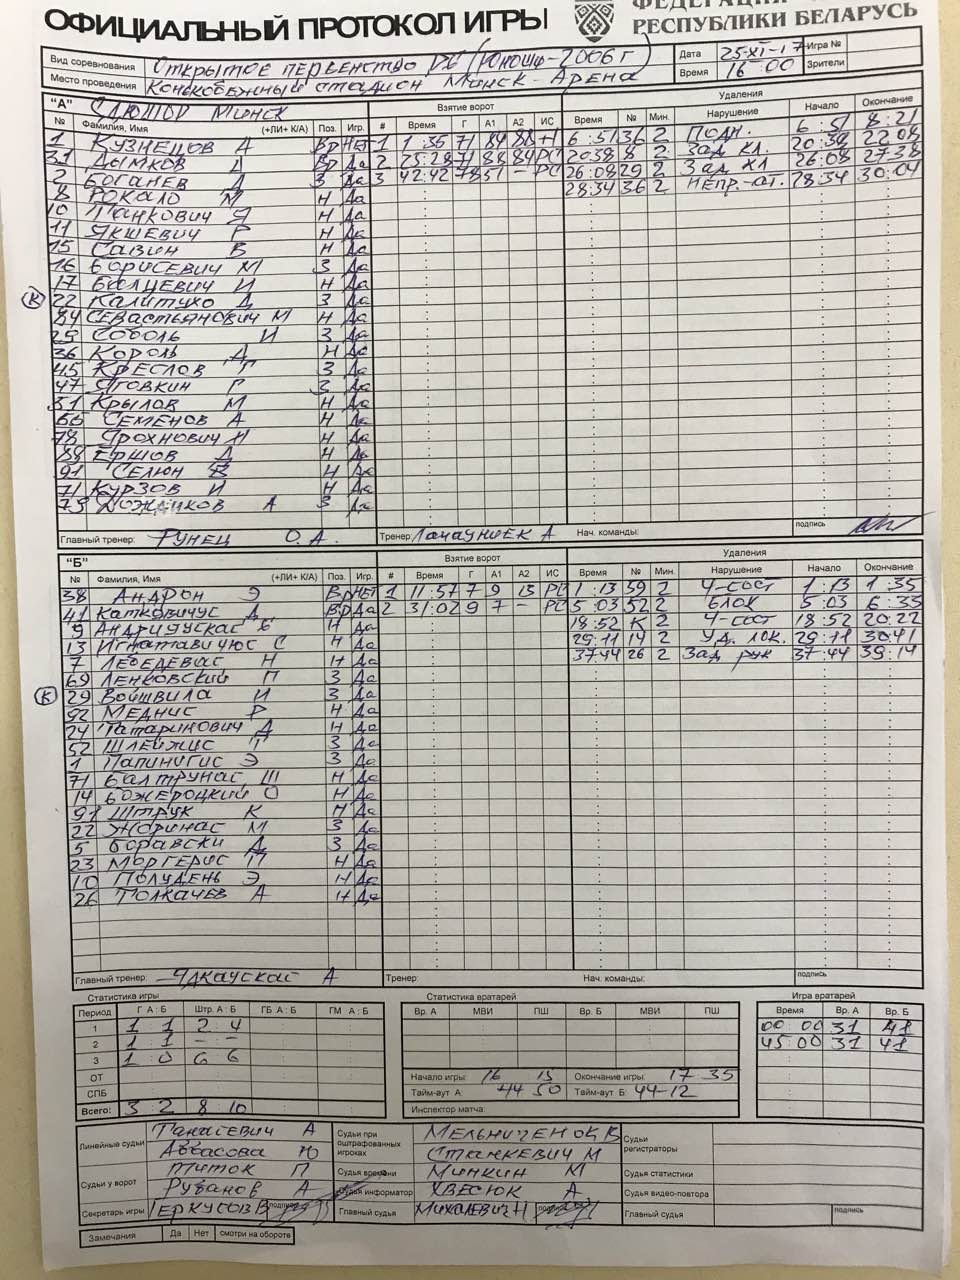 ОФИЦИАЛЬНЫЙ ПРОТОКОЛ ИГРЫ
РЕСПУБЛИКИ БЕЛАРУСЬ
Вид соревнования Открытое первенство РБ (Юноши-2006г) Дата 25-XI-17 Игра №
Место проведения Конькобежный стадион Минск-Арена Время 16 00 Зрители
"А" Минск Взятие ворот Удаления
№ Фамилия, Имя (+ЛИ+ К/А) Поз. Игр. # Время Г А1 А2 ИС Время № Мин. Нарушение Начало Окончание
1 Кузнецов А Вр Нет 1 1:35 71 84 88 +1 6:51 36 2 Подн. 6:51 8:21
31 Дымков Д Вр Да 2 25:28 71 88 84 РС 20:38 8 2 Зад кл. 20:38 22:08
2 Боганев Д З Да 3 42:42 78 51 - РС 26:08 29 2 Зад хл 26:08 27:38
8 Рокало М Н Да 28:34 36 2 Непр.-ат. 28:34 30:04
10 Панкович Я Н Да
11 Якшевич Р Н Да
15 Савин В Н Да
16 Борисевич М З Да
17 Балцевич И Н Да
(К) 22 Калитухо Д З Да
84 Севастьянович М Н Да
29 Соболь И З Да
36 Король Д Н Да
45 Креслов Г З Да
47 Яговкин Г З Да
51 Крылов М Н Да
66 Семенов А Н Да
78 Ярохнович Н Н Да
88 Ершов Д Н Да
91 Селюн В Н Да
71 Курзов И Н Да
75 А З Да
Главный тренер: Рунец О.А. Тренер: А Нач. команды: подпись
"Б" Взятие ворот Удаления
№ Фамилия, Имя (+ЛИ+ К/А) Поз. Игр. # Время Г А1 А2 ИС Время № Мин. Нарушение Начало Окончание
38 Андрон Э Вр Нет 1 11:57 7 9 13 РС 1:13 59 2 Ч-сост 1:13 1:35
41 Каткович­ус Д Вр Да 2 31:02 9 7 - РС 5:03 52 2 Блок 5:03 6:33
9 Андрияускас Б Н Да 18:52 К 2 Ч-сост 18:52 20:22
13 Игнатавичюс С Н Да 29:11 14 2 Уд. лок. 29:11 30:41
7 Лебедевас Н Н Да 37:44 26 2 Зад рук 37:44 39:14
69 Ленковский П З Да
(К) 29 Войшвила И З Да
92 Меднис Р Н Да
24 Татаринович Д Н Да
52 Шлейжис Т З Да
1 Папинигис Э З Да
71 Балтрунас Ш Н Да
14 Божероцкий О Н Да
91 Штрук К Н Да
22 Жоринас М З Да
5 Боравски Д З Да
23 Моргерис П Н Да
10 Полудень Э Н Да
26 Толкачев А Н Да
Главный тренер: А Тренер: Нач. команды: подпись
Статистика игры Статистика вратарей Игра вратарей
Период Г А : Б Штр. А : Б ГБ А : Б ГМ А : Б Вр. А МВИ ПШ Вр. Б МВИ ПШ Время Вр. А Вр. Б
1 1 1 2 4 00:00 31 41
2 1 1 - - 45:00 31 41
3 1 0 6 6
ОТ Начало игры: 16 15 Окончание игры: 17 35
СПБ Тайм-аут А: 44 50 Тайм-аут Б: 44-12
Всего: 3 2 8 10 Инспектор матча:
Линейные судьи Танасевич А Судьи при оштрафованных игроках Мельниченок В Судьи регистраторы
Аббасова Ю Станкевич М
Судьи у ворот Титок П Судья времени Минкин М Судья статистики
Рубанов А Судья информатор Хвесюк А Судья видео-повтора
Секретарь игры Геркусов В подпись Главный судья Михалевич Н подпись Главный судья подпись
Замечания Да Нет смотри на обороте